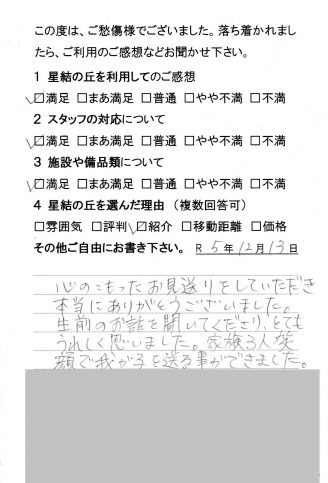 この度は、ご愁傷様でございました。落ち着かれまし
たら、ご利用のご感想などお聞かせ下さい。
1 星結の丘を利用してのご感想
☑満足 □まあ満足 □普通 □やや不満 □不満
2 スタッフの対応について
☑満足 □まあ満足 □普通 □やや不満 □不満
3 施設や備品類について
☑満足 □まあ満足 □普通 □やや不満 □不満
4 星結の丘を選んだ理由 （複数回答可）
□雰囲気 □評判 ☑紹介 □移動距離 □価格
その他ご自由にお書き下さい。 R 5年12月13日
心のこもったお見送りをしていただき
本当にありがとうございました。
生前のお話を聞いてくださり、とても
うれしく思いました。家族3人笑
顔で我が子を送る事ができました。